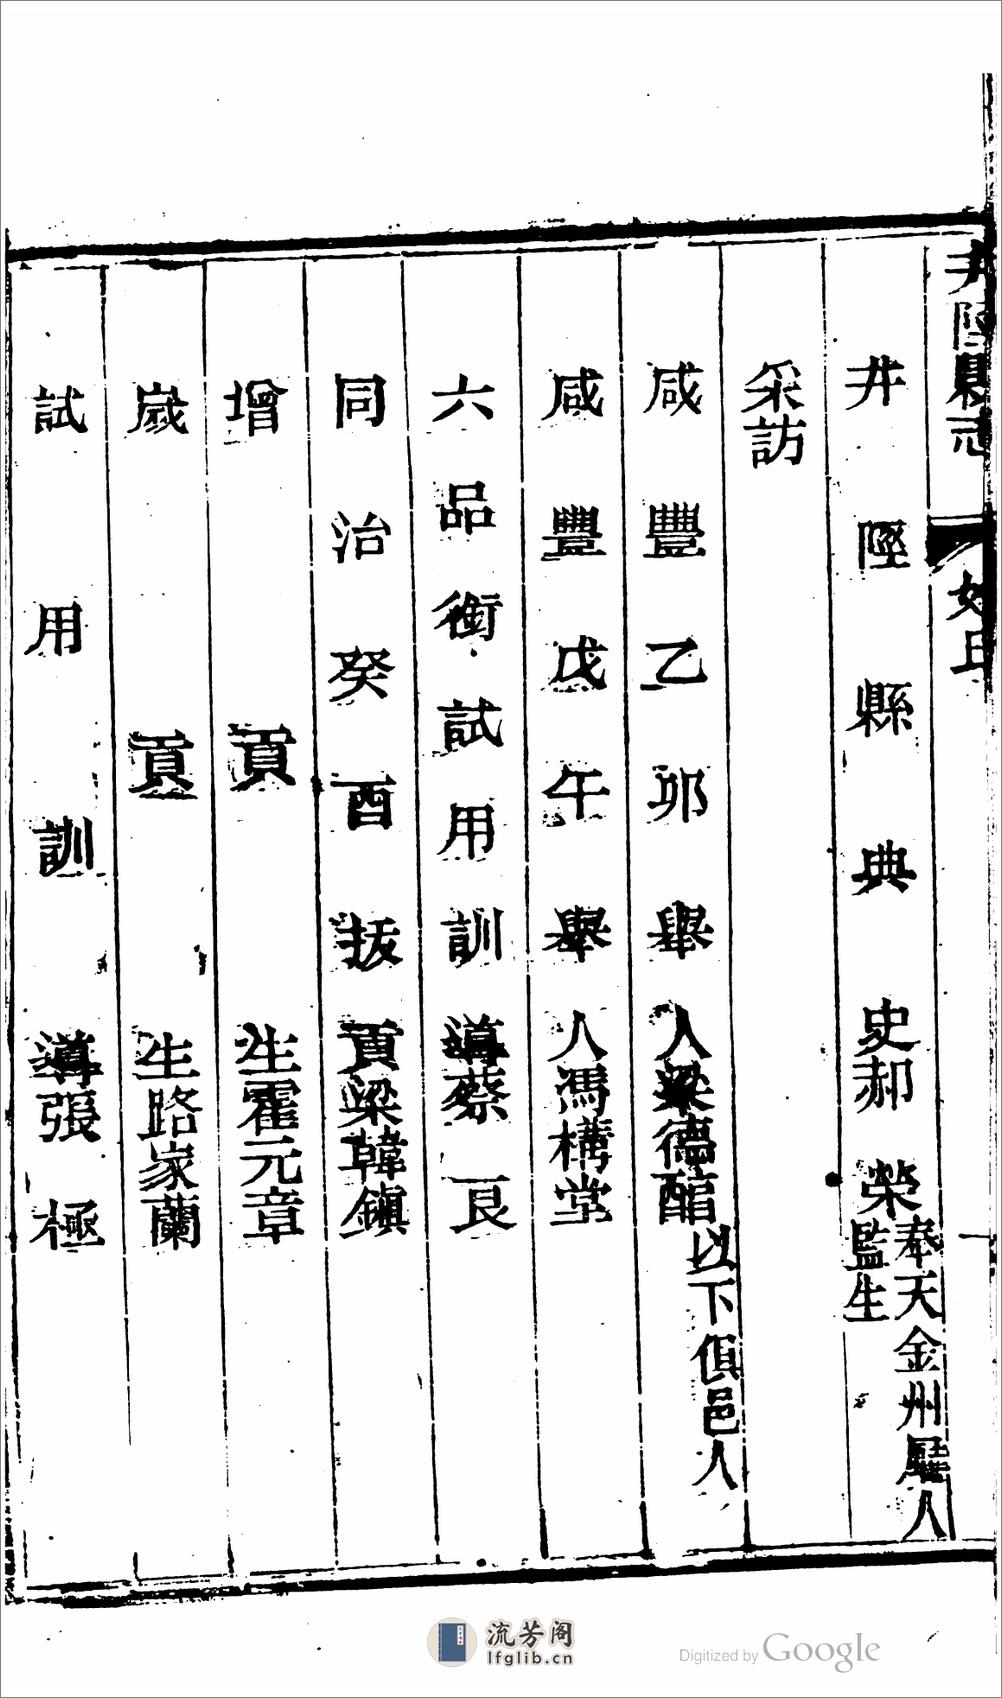 井陘縣志
姓氏
井陘縣典史郝榮奉天金州廳人監生
采訪
咸豐乙卯舉人梁德馆以下俱邑人
咸豐戊午舉人馮構堂
六品銜試用訓導蔡良
同治癸酉拔貢梁韓鎮
增貢生霍元章
歲貢生路家蘭
試用訓導張極
流芳阁
lfglib.cn
Digitized by Google